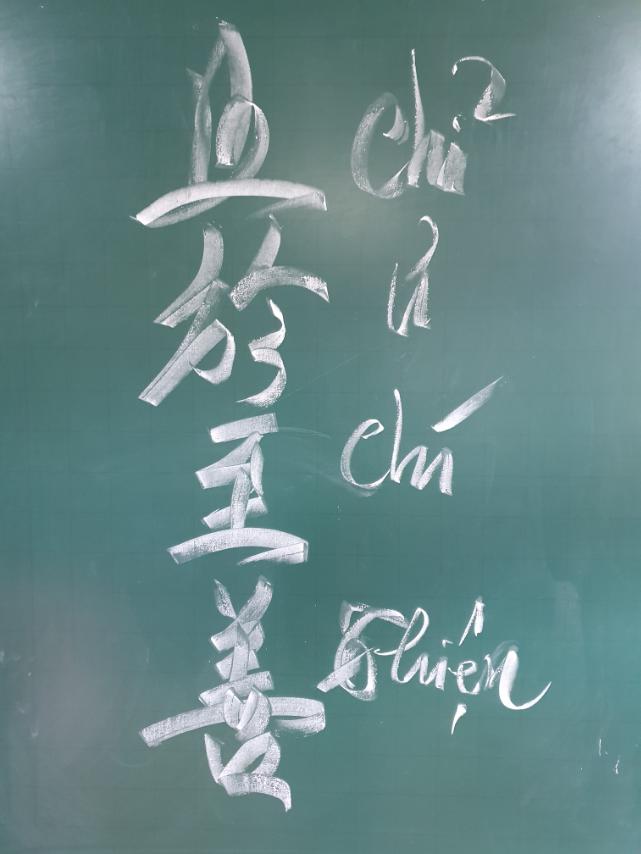 止於至善
chỉ
ư
chí
Thiện